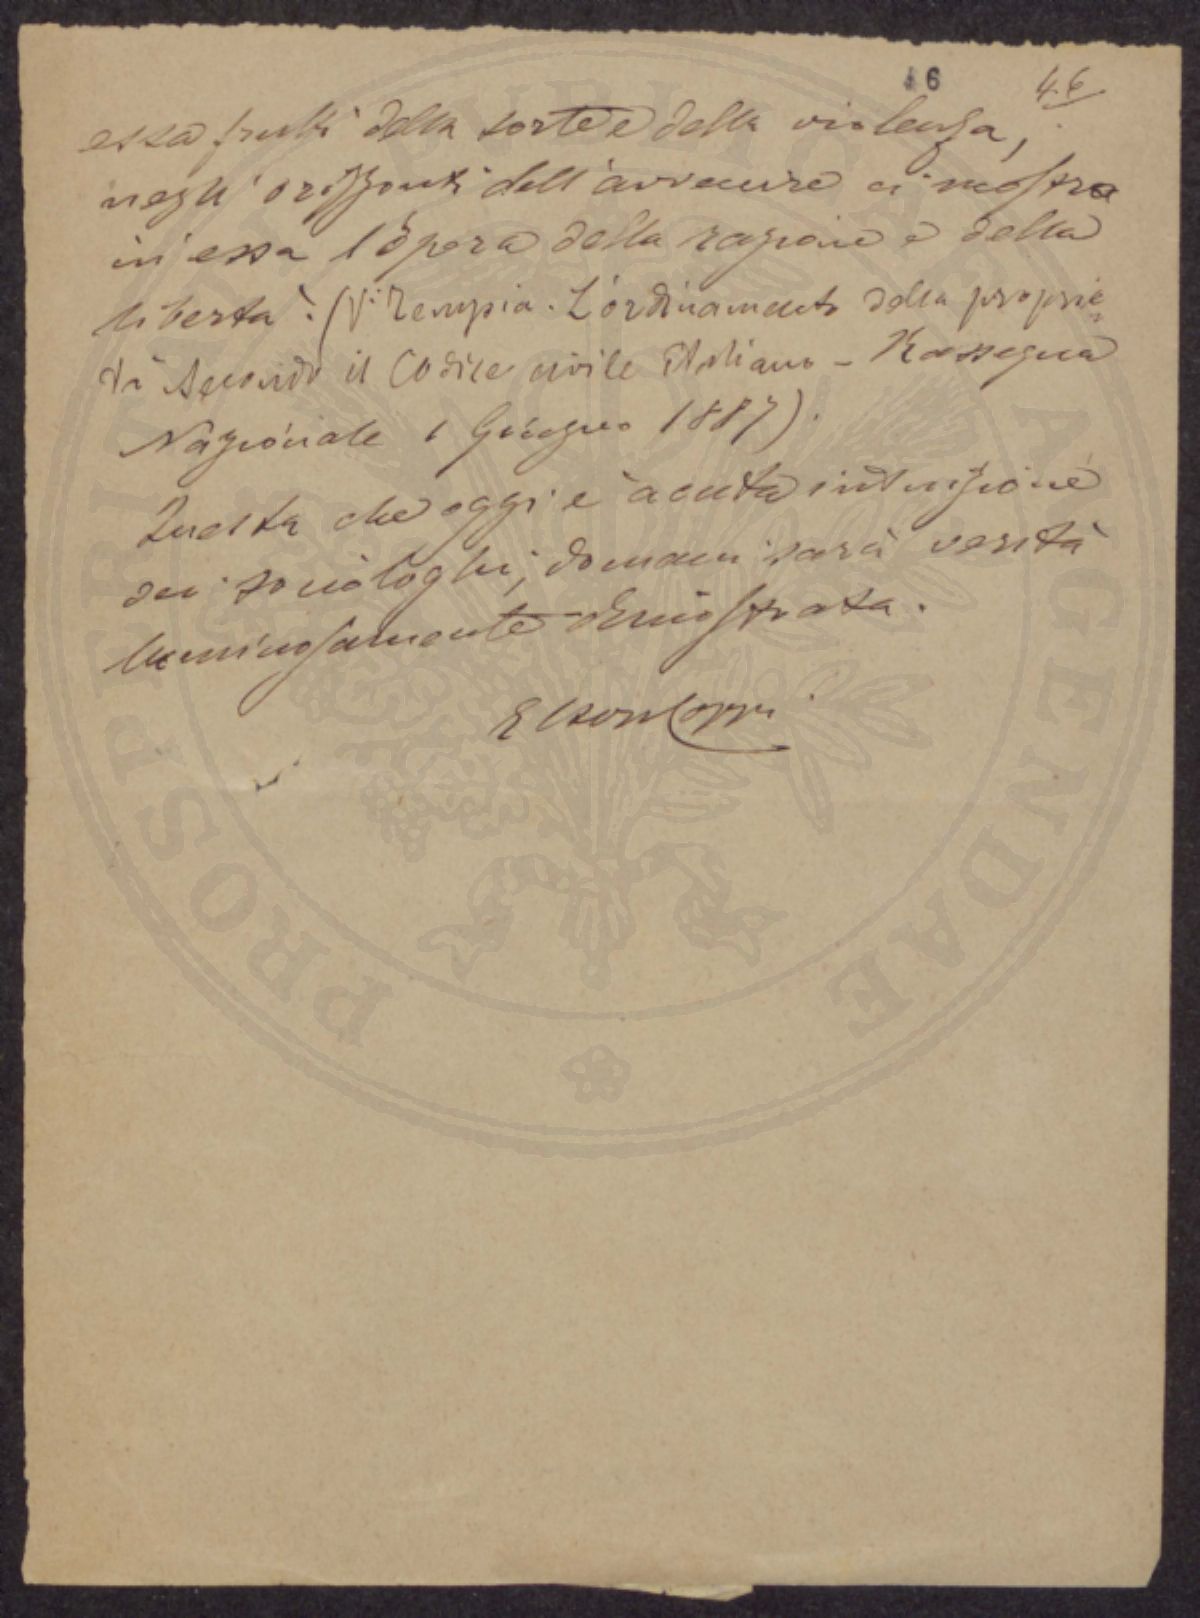 16 46
essa frutti della sorte e della violenza,
negli orizzonti dell'avvenire ci mostra
in essa l'opera della ragione e della
libertà. (V. Tempia. L'ordinamento della proprie=
tà secondo il Codice civile Italiano - Rassegna
Nazionale 1 Giugno 1887).
Questa che oggi è acuta intuizione
dei sociologhi, domani sarà verità
luminosamente dimostrata.
PROSPERITATI PUBLICAE AUGENDAE